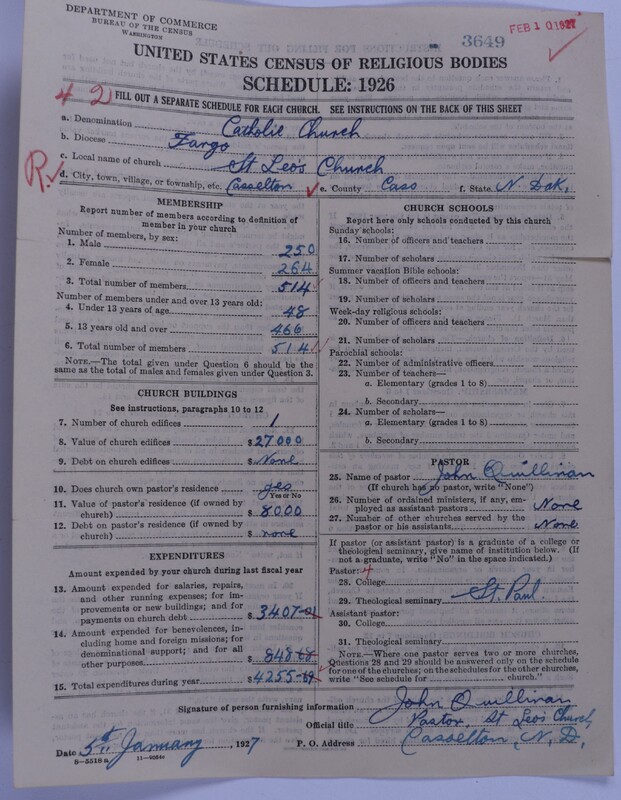 DEPARTMENT OF COMMERCE
BUREAU OF THE CENSUS
WASHINGTON
FEB 10 1927
3649
UNITED STATES CENSUS OF RELIGIOUS BODIES
SCHEDULE: 1926
4 2
FILL OUT A SEPARATE SCHEDULE FOR EACH CHURCH. SEE INSTRUCTIONS ON THE BACK OF THIS SHEET
a. Denomination Catholic Church
b. Diocese Fargo
c. Local name of church St Leo's Church
R.
d. City, town, village, or township, etc. Casselton e. County Cass f. State N. Dak.
MEMBERSHIP
Report number of members according to definition of
member in your church
Number of members, by sex:
1. Male 250
2. Female 264
3. Total number of members 514
Number of members under and over 13 years old:
4. Under 13 years of age 48
5. 13 years old and over 466
6. Total number of members 514
NOTE.—The total given under Question 6 should be
the same as the total of males and females given under Question 3.
CHURCH BUILDINGS
See instructions, paragraphs 10 to 12
7. Number of church edifices 1
8. Value of church edifices $27000
9. Debt on church edifices $None
10. Does church own pastor's residence yes
Yes or No
11. Value of pastor's residence (if owned by
church) $8000
12. Debt on pastor's residence (if owned by
church) $none
EXPENDITURES
Amount expended by your church during last fiscal year
13. Amount expended for salaries, repairs,
and other running expenses; for im-
provements or new buildings; and for
payments on church debt $3407
14. Amount expended for benevolences, in-
cluding home and foreign missions; for
denominational support; and for all
other purposes 848
15. Total expenditures during year $4255
CHURCH SCHOOLS
Report here only schools conducted by this church
Sunday schools:
16. Number of officers and teachers
17. Number of scholars
Summer vacation Bible schools:
18. Number of officers and teachers
19. Number of scholars
Week-day religious schools:
20. Number of officers and teachers
21. Number of scholars
Parochial schools:
22. Number of administrative officers
23. Number of teachers—
a. Elementary (grades 1 to 8)
b. Secondary
24. Number of scholars—
a. Elementary (grades 1 to 8)
b. Secondary
PASTOR
25. Name of pastor John Quillinan
(If church has no pastor, write "None")
26. Number of ordained ministers, if any, em-
ployed as assistant pastors None
27. Number of other churches served by the
pastor or his assistants None
If pastor (or assistant pastor) is a graduate of a college or
theological seminary, give name of institution below. (If
not a graduate, write "No" in the space indicated.)
Pastor: 4
28. College
29. Theological seminary St. Paul
Assistant pastor:
30. College
31. Theological seminary
NOTE.—Where one pastor serves two or more churches,
Questions 28 and 29 should be answered only on the schedule
for one of the churches; on the schedules for the other churches,
write "See schedule for church."
Signature of person furnishing information John Quillinan
Official title Pastor, St Leo's Church
Date 5th January, 1927 P. O. Address Casselton, N, D,
8—5518 a